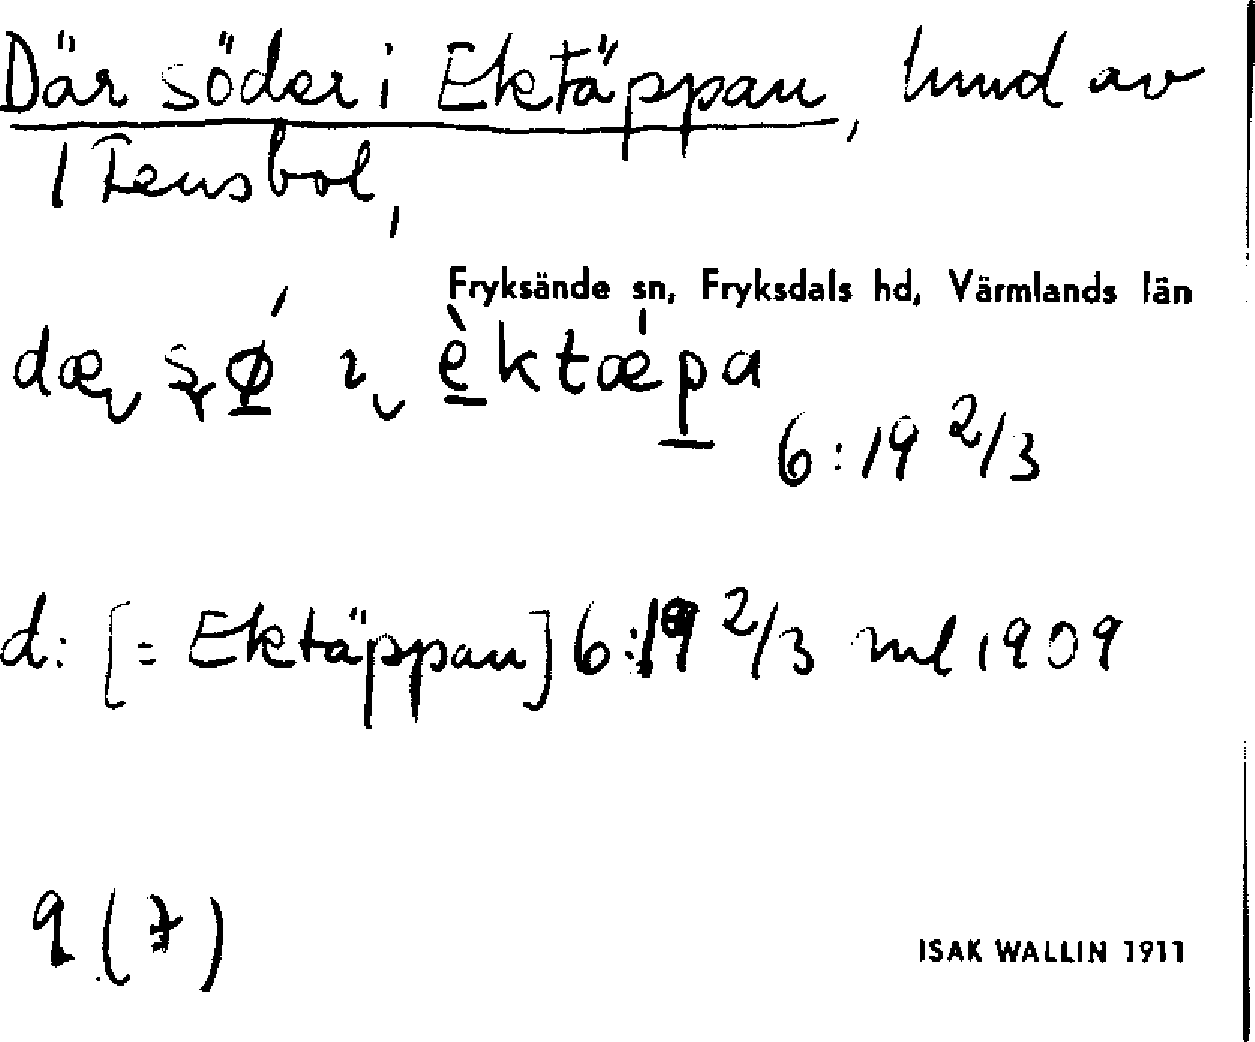 Där söder i Ektäppan, hmd av
1 Stensbol,
Fryksände sn, Fryksdals hd, Värmlands län
dæ sø ı èktæ´pa
6:19 2/3
d: [= Ektäppan] 6:19 2/3 ml 1909
9 (7)
ISAK WALLIN 1911